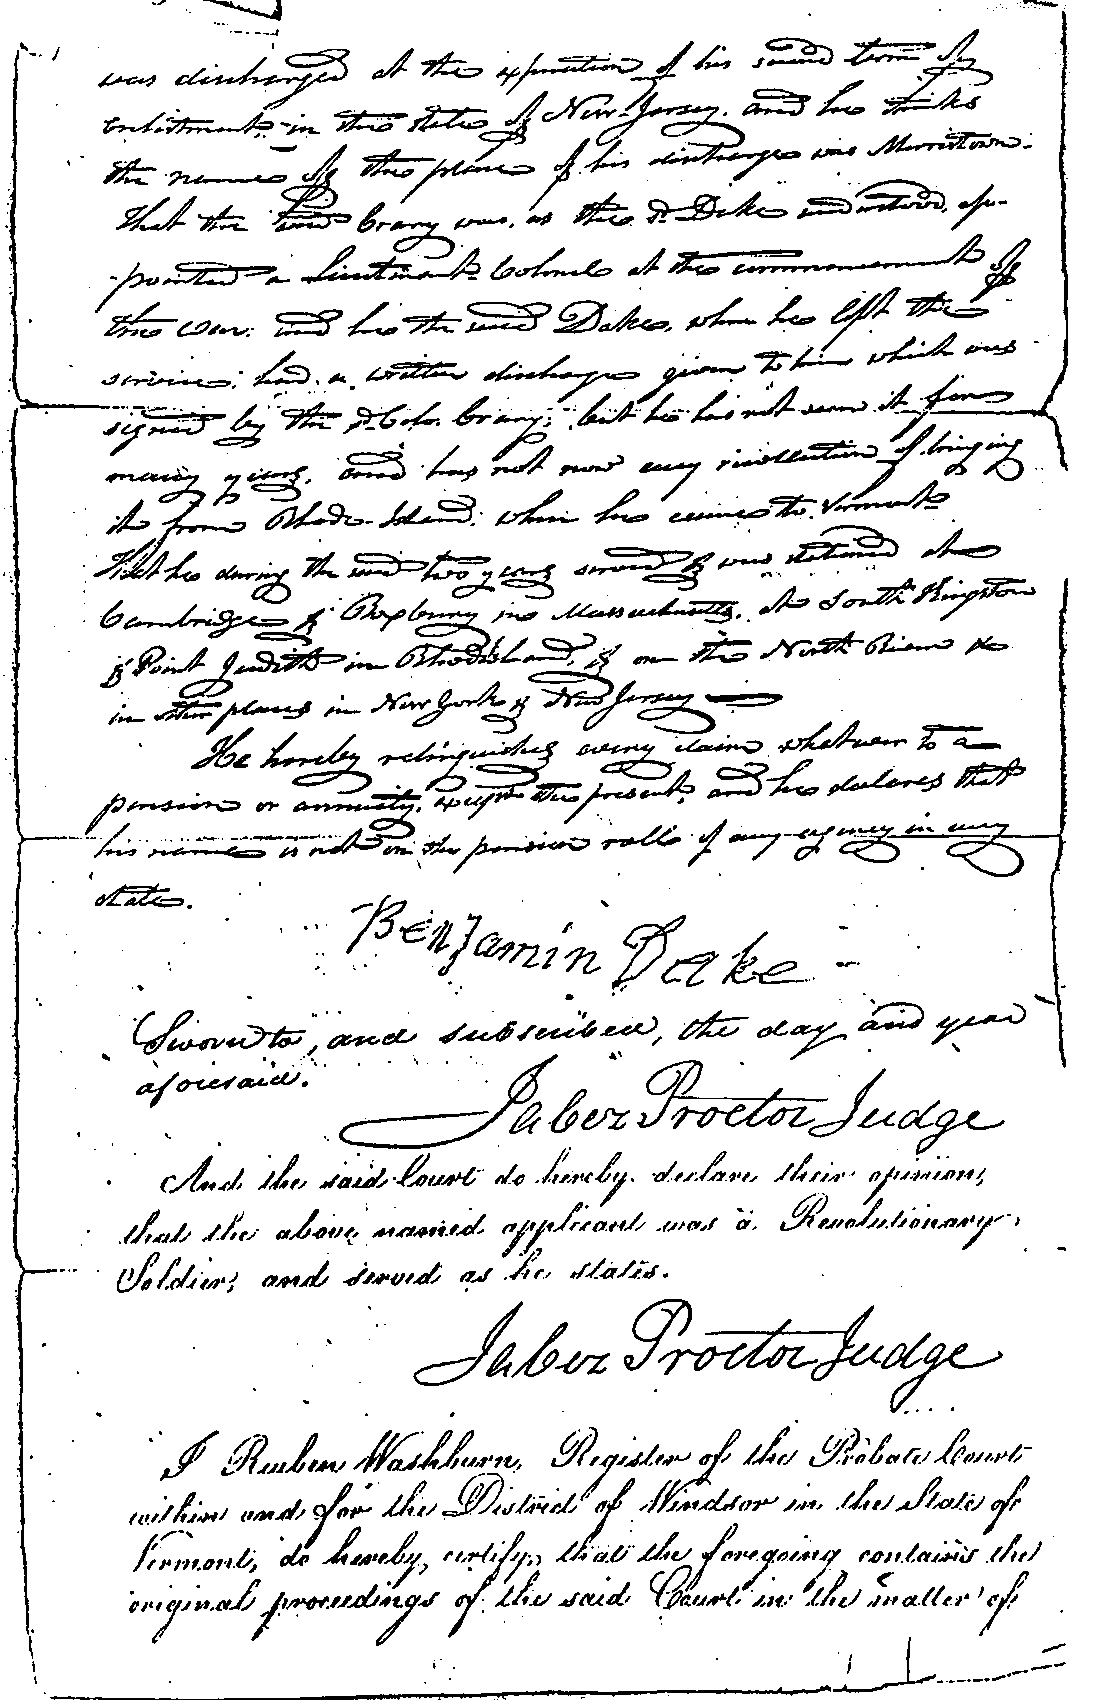 was discharged at the expiration of his second term of
enlistment in the state of New Jersey. and he thinks
the name of the place of his discharge was Morristown.
That the said Crary was, as the sd. Dake understood, ap-
-pointed a Lieutenant Colonel at the commencement of
the war: and he the said Dake, when he left the
service, had a written discharge given to him which was
signed by the sd. Colo. Crary; but he has not seen it for
many years, and has not now any recollection of bringing
it from Rhode-Island, when he came to Vermont.
That he during the said two years served & was stationed at
Cambridge & Roxbury in Massachusetts, at South Kingston
& Point Judith in Rhode Island, & on the North River &c
in other places in New York & New Jersey
He hereby relinquishes every claim whatever to a
pension or annuity, except the present, and he declares that
his name is not on the pension roll of any agency in any
state.
Benjamin Dake
Sworn to, and subscribed, the day and year
aforesaid.
Jabez Proctor Judge
And the said Court do hereby declare their opinion,
that the above named applicant was a Revolutionary
Soldier, and served as he states.
Jabez Proctor Judge
I Reuben Washburn, Register of the Probate Court
within and for the District of Windsor in the State of
Vermont, do hereby certify, that the foregoing contains the
original proceedings of the said Court in the matter of